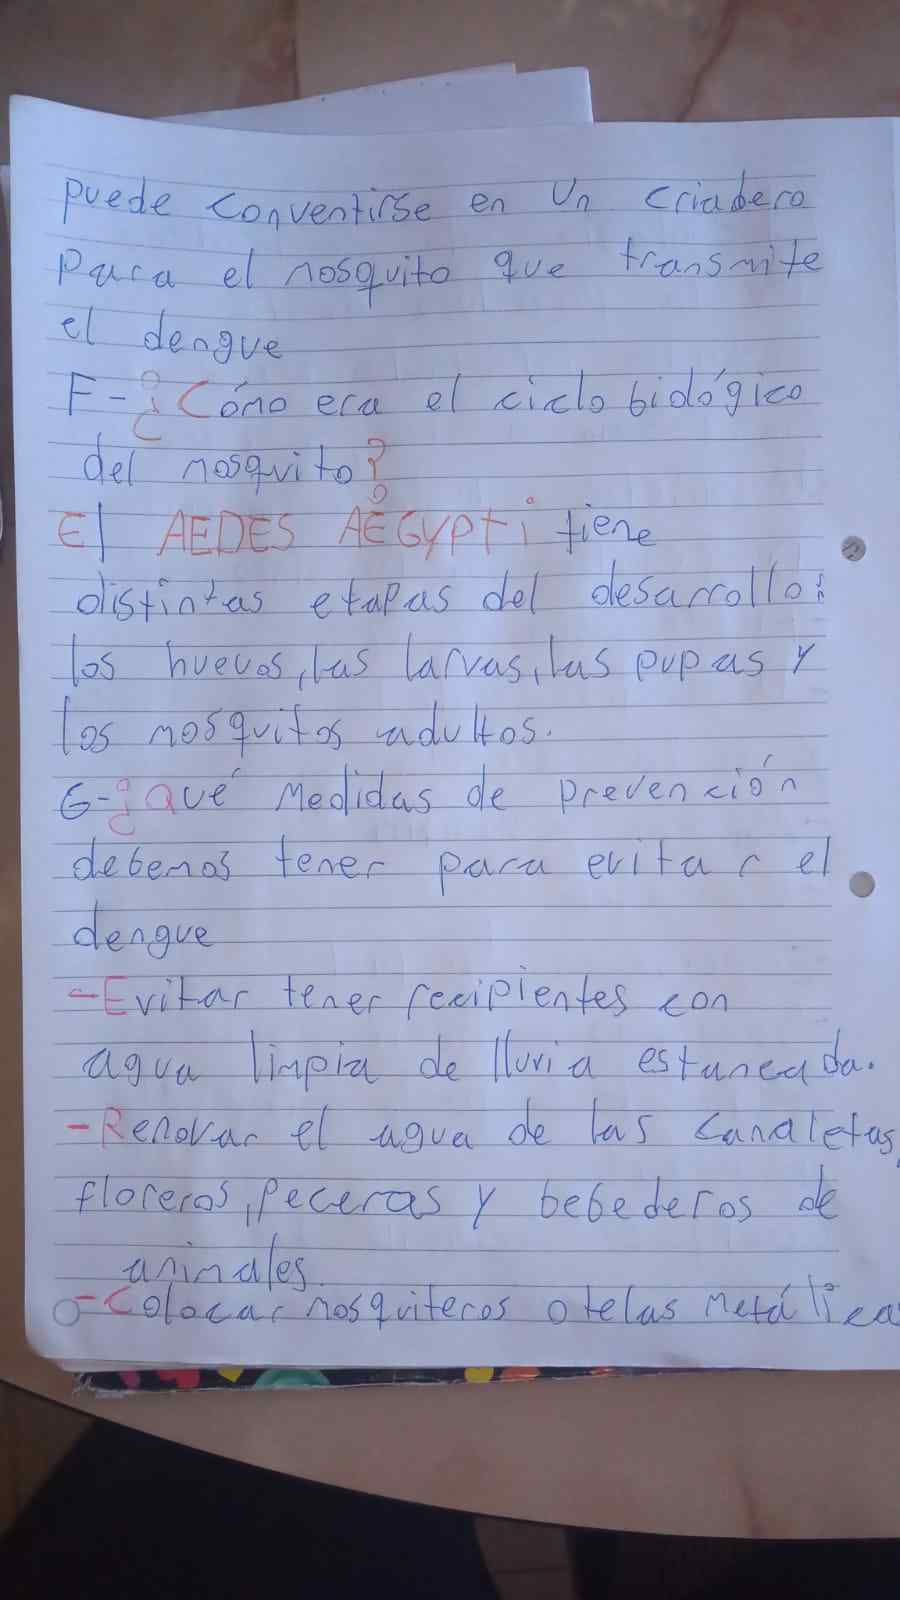 puede conventirse en un criadero
para el mosquito que transmite
el dengue
F-¿Cómo era el ciclo biológico
del mosquito?
El AEDES AEGYPti tiene
distintas etapas del desarrollo:
los huevos, las larvas, las pupas y
los mosquitos adultos.
G-¿Qué Medidas de prevención
debemos tener para evitar el
dengue
-Evitar tener recipientes con
agua limpia de lluvia estancada.
-Renovar el agua de las canaletas,
floreros, peceras y bebederos de
animales.
-Colocar mosquiteros o telas metálica